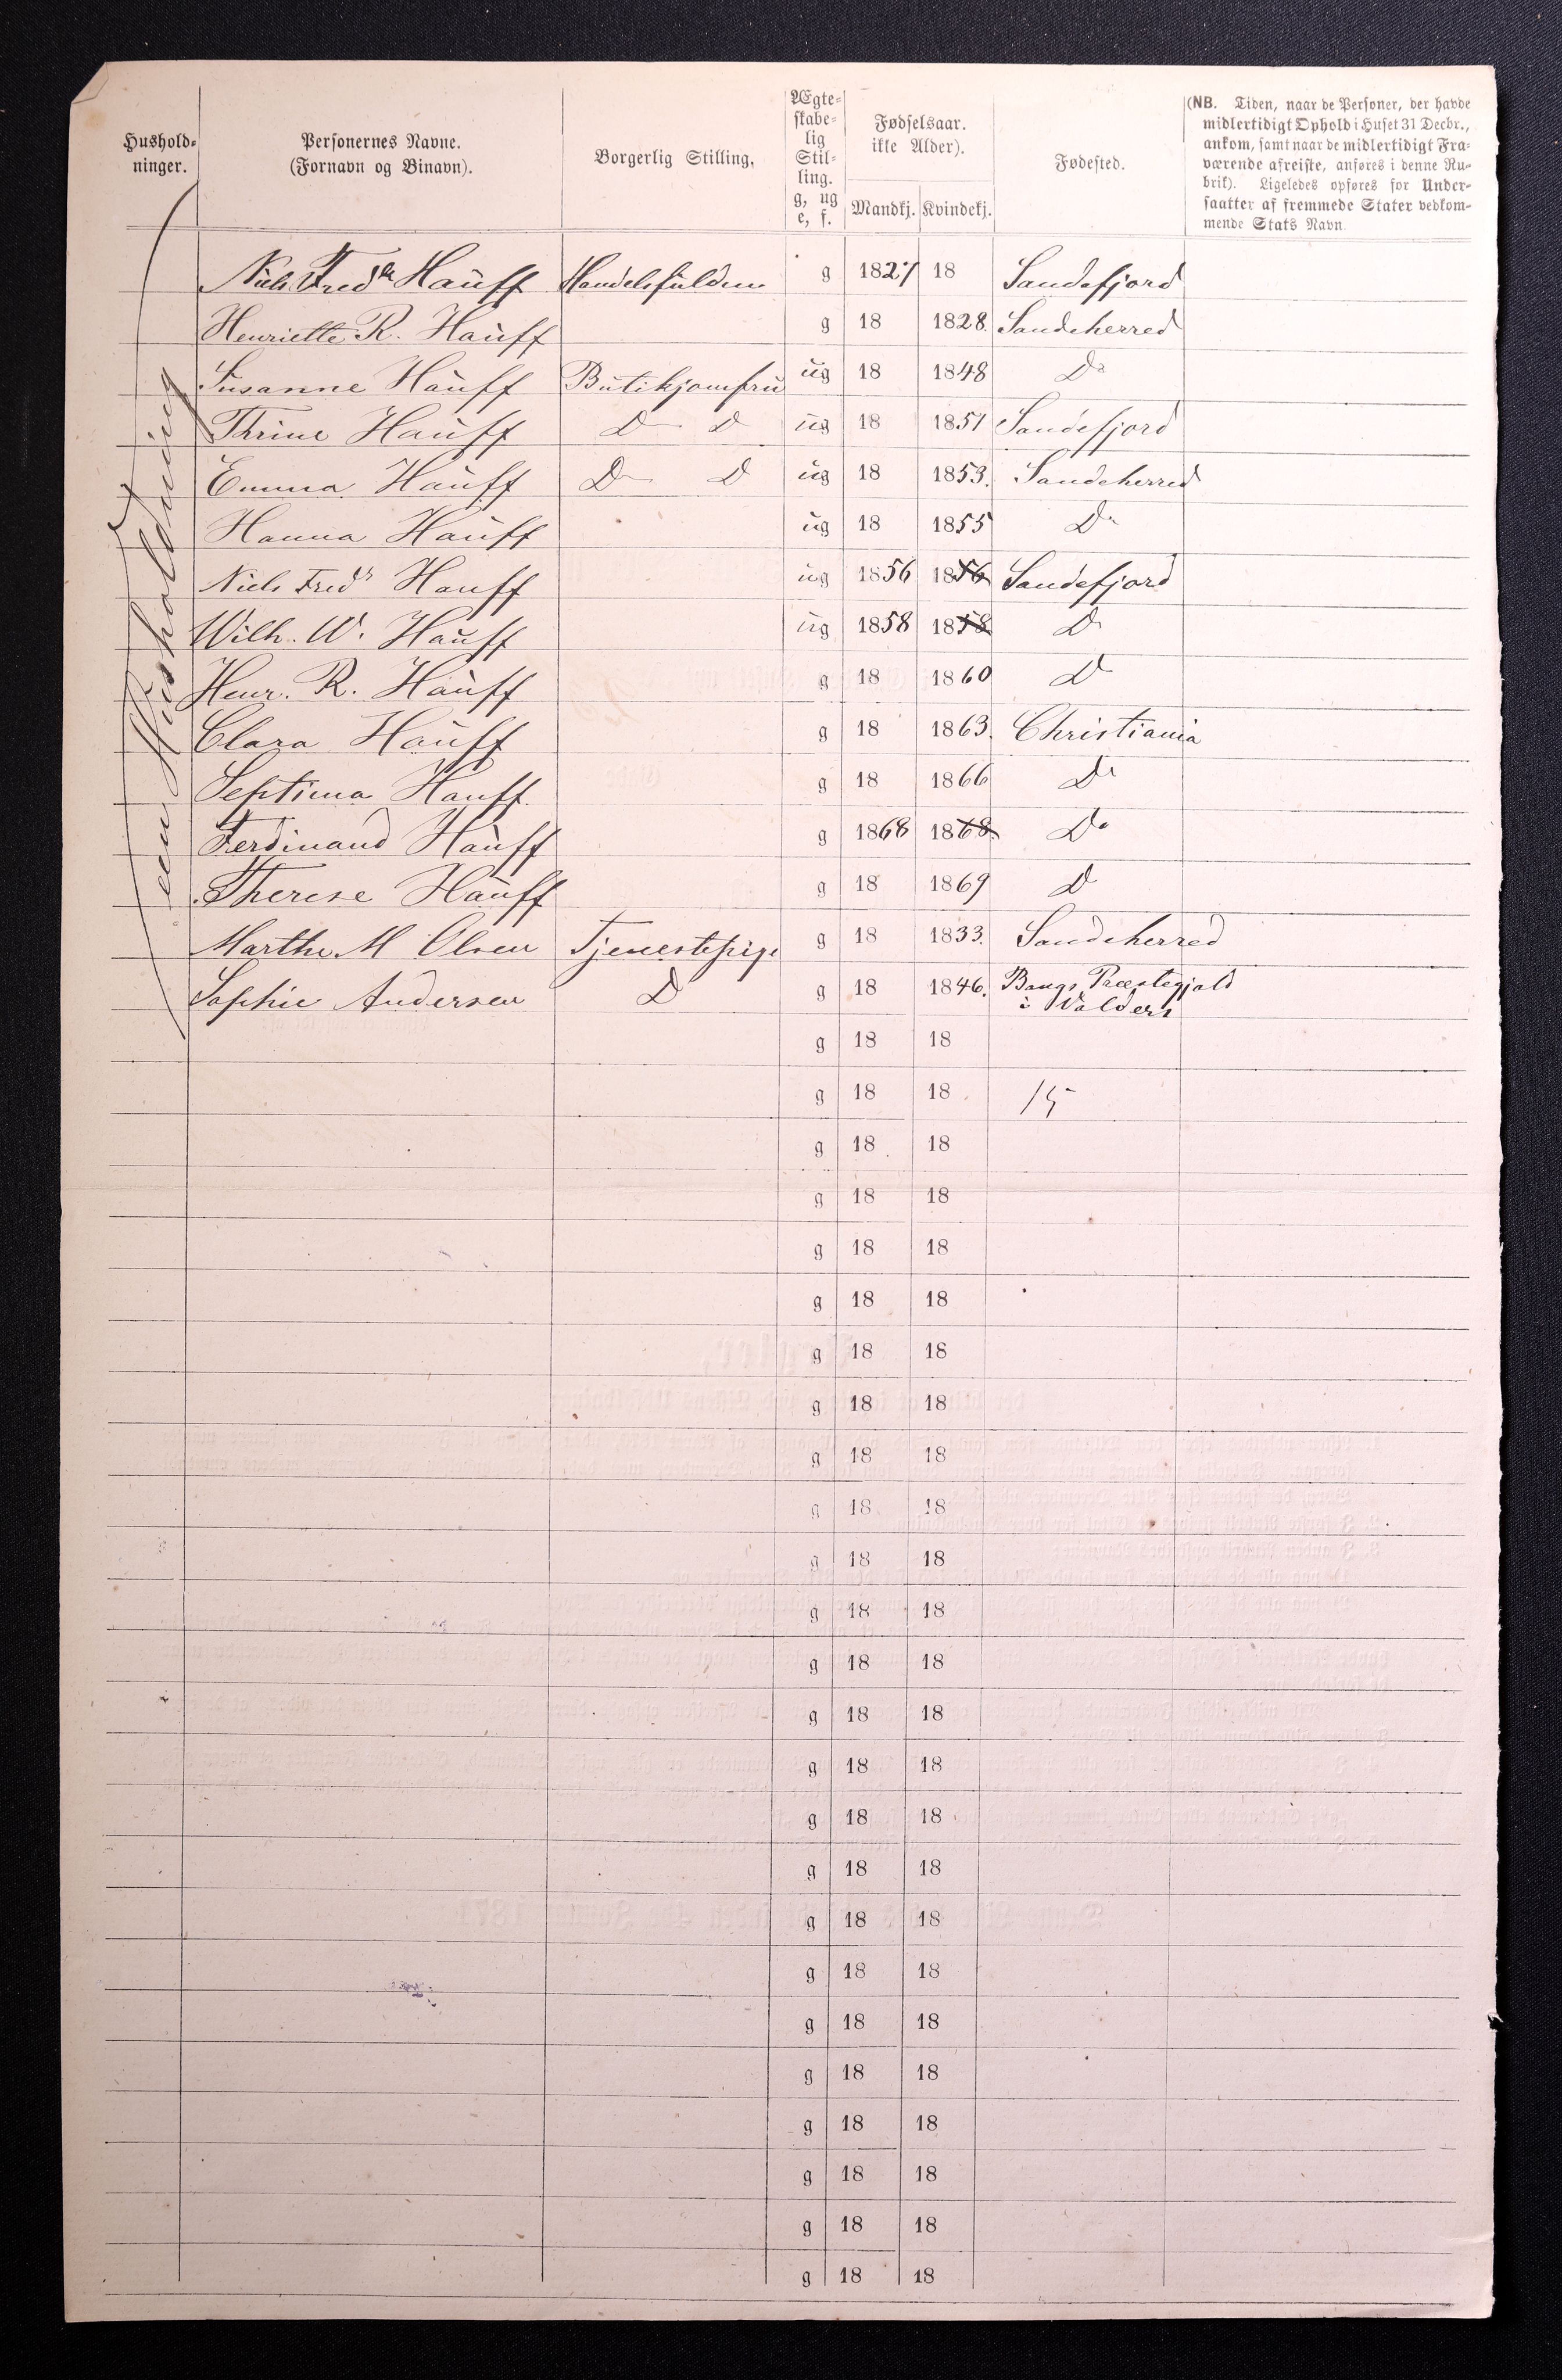 Hushold-
ninger.
Personernes Navne.
(Fornavn og Binavn).
Borgerlig Stilling,
Ægte-
skabe-
lig
Stil-
ling.
g, ug
e, f.
Fødselsaar.
ikke Alder).
Mandkj. Kvindekj.
Fødested.
(NB. Tiden, naar de Personer, der havde
midlertidigt Ophold i Huset 31 Decbr.,
ankom, samt naar de midlertidigt Fra-
værende afreiste, anføres i denne Ru-
brik). Ligeledes opføres for Under-
saatter af fremmede Stater vedkom-
mende Stats Navn.
een Husholdning
Niels Fredr Hauff g 1827 18 Sandefjord
Henriette R. Hauff g 18 1828. Sandeherred
Susanne Hauff Butikjomfru ug 18 1848 Do
Thrine Hauff D D ug 18 1851 Sandefjord
Emma Hauff D D ug 18 1853. Sandeherred
Hanna Hauff ug 18 1855 Do
Niels Fredr Hauff ug 1856 1856 Sandefjord
Wilh. W. Hauff ug 1858 1858 Do
Henr. R. Hauff g 18 1860 D
Clara Hauff g 18 1863. Christiania
Septima Hauff g 18 1866 Do
Ferdinand Hauff g 1868 1868. Do
Therese Hauff g 18 1869 D
Marthe M Olsen Tjenestepige g 18 1833. Sandeherred
Sophie Andersen D g 18 1846. Bangs Præstegjeld
i Valders
g 18 18
g 18 18 15
g 18 18
g 18 18
g 18 18
g 18 18
g 18 18
g 18 18
g 18 18
g 18 18
g 18 18
g 18 18
g 18 18
g 18 18
g 18 18
g 18 18
g 18 18
g 18 18
g 18 18
g 18 18
g 18 18
g 18 18
g 18 18
g 18 18
g 18 18